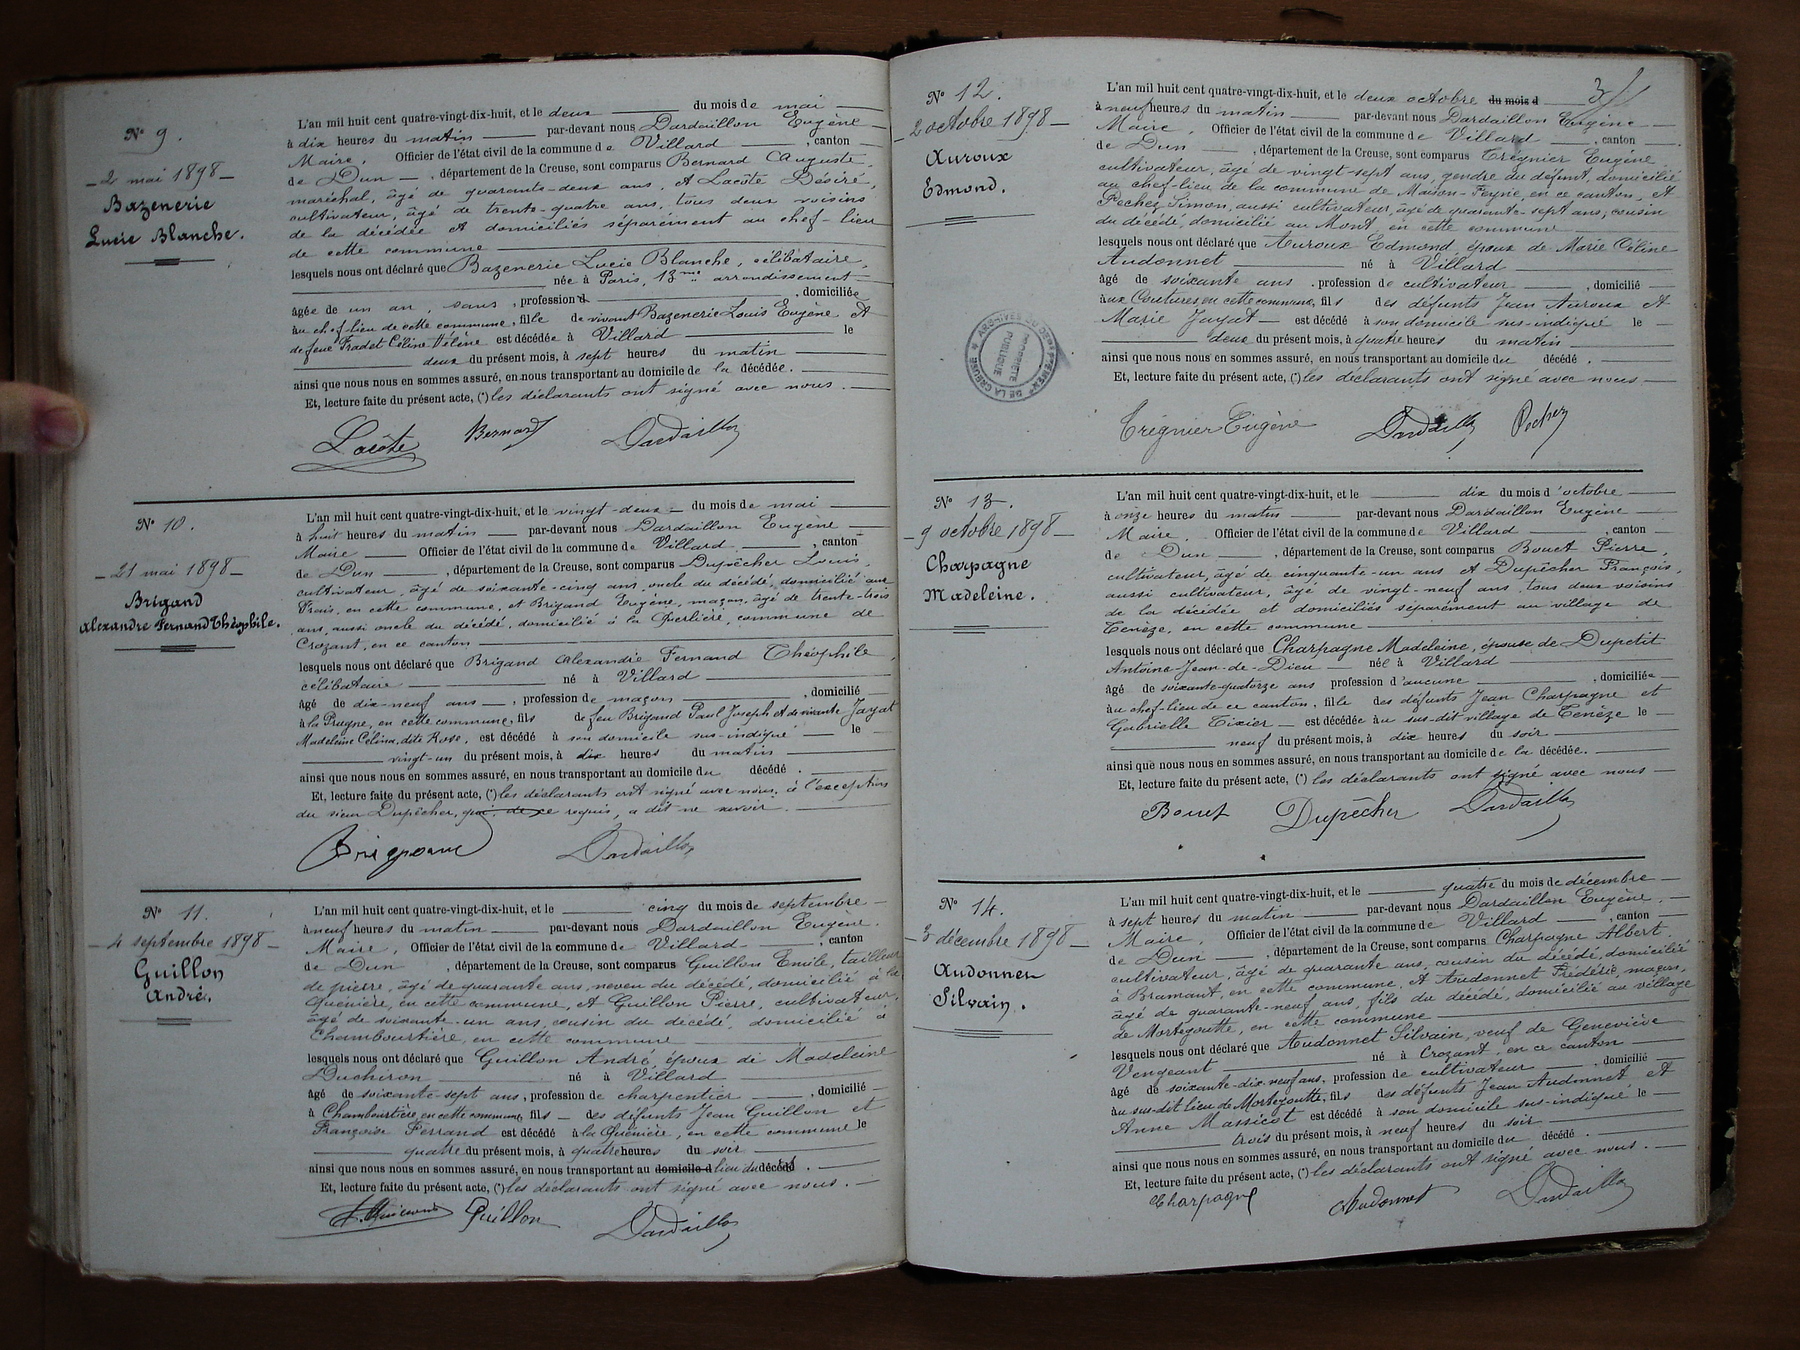 N° 9.
2 mai 1898
Bazenerie
Lucie Blanche.
L'an mil huit cent quatre-vingt-dix-huit, et le deux du mois de mai
à dix heures du matin par-devant nous Dardaillon Eugène
Maire, Officier de l'état civil de la commune de Villard, canton
de Dun, département de la Creuse, sont comparus Bernard Auguste,
maréchal, âgé de quarante-deux ans, et Lacôte Désiré,
cultivateur, âgé de trente-quatre ans, tous deux voisins
de la décédée et domiciliés séparément au chef-lieu
de cette commune
lesquels nous ont déclaré que Bazenerie Lucie Blanche, célibataire,
née à Paris, 13me arrondissement
âgée de un an, sans, profession d, domiciliée
au chef-lieu de cette commune, fille de vivant Bazenerie Louis Eugène et
de feue Fradet Céline Hélène est décédée à Villard le
deux du présent mois, à sept heures du matin
ainsi que nous nous en sommes assuré, en nous transportant au domicile de la décédée.
Et, lecture faite du présent acte, (*) les déclarants ont signé avec nous.
Lacôte Bernard Dardaillon
N° 10.
21 mai 1898
Brigand
Alexandre Fernand Théophile.
L'an mil huit cent quatre-vingt-dix-huit, et le vingt-deux du mois de mai
à huit heures du matin par-devant nous Dardaillon Eugène
Maire Officier de l'état civil de la commune de Villard, canton
de Dun, département de la Creuse, sont comparus Dupêcher Louis,
cultivateur, âgé de soixante-cinq ans, oncle du décédé, domicilié aux
en cette commune, et Brigand Eugène, maçon, âgé de trente-trois
ans, aussi oncle du décédé, domicilié à la commune de
Crozant, en ce canton
lesquels nous ont déclaré que Brigand Alexandre Fernand Théophile,
célibataire né à Villard
âgé de dix-neuf ans, profession de maçon, domicilié
à la Prugne, en cette commune, fils de feu Brigand Paul Joseph et de vivante Jayat
Madeleine Célina, dite Rose, est décédé à son domicile sus-indiqué le
vingt-un du présent mois, à dix heures du matin
ainsi que nous nous en sommes assuré, en nous transportant au domicile du décédé.
Et, lecture faite du présent acte, (*) les déclarants ont signé avec nous, à l'exception
du sieur Dupêcher, qui, de ce requis, a dit ne savoir.
Dardaillon
N° 11.
4 septembre 1898
Guillon
André.
L'an mil huit cent quatre-vingt-dix-huit, et le cinq du mois de septembre
à neuf heures du matin par-devant nous Dardaillon Eugène.
Maire, Officier de l'état civil de la commune de Villard, canton
de Dun, département de la Creuse, sont comparus Guillon Emile, tailleur
de pierre, âgé de quarante ans, neveu du décédé, domicilié à la
Quénière, en cette commune, et Guillon Pierre, cultivateur,
âgé de soixante-un ans, cousin du décédé, domicilié à
Chambourtière, en cette commune
lesquels nous ont déclaré que Guillon André, époux de Madeleine
Duchiron né à Villard
âgé de soixante-sept ans, profession de charpentier, domicilié
à Chambourtière, en cette commune, fils des défunts Jean Guillon et
Françoise Ferrand est décédé à la Quénière, en cette commune le
quatre du présent mois, à quatre heures du soir
ainsi que nous nous en sommes assuré, en nous transportant au domicile d lieu du décéd.
Et, lecture faite du présent acte, (*) les déclarants ont signé avec nous.
Guillon Dardaillon
N° 12.
2 octobre 1898
Auroux
Edmond.
L'an mil huit cent quatre-vingt-dix-huit, et le deux octobre du mois d
à neuf heures du matin par-devant nous Dardaillon Eugène
Maire, Officier de l'état civil de la commune de Villard, canton
de Dun, département de la Creuse, sont comparus Trégnier Eugène,
cultivateur, âgé de vingt-sept ans, gendre du défunt, domicilié
au chef-lieu de la commune de Maison-Feyne, en ce canton, et
Pechez Simon, aussi cultivateur, âgé de quarante-sept ans, cousin
du décédé, domicilié au Mont, en cette commune
lesquels nous ont déclaré que Auroux Edmond, époux de Marie Céline
Audonnet né à Villard
âgé de soixante ans, profession de cultivateur, domicilié
aux Coutures, en cette commune, fils des défunts Jean Auroux et
Marie Jayat est décédé à son domicile sus-indiqué le
deux du présent mois, à quatre heures du matin
ainsi que nous nous en sommes assuré, en nous transportant au domicile du décédé.
Et, lecture faite du présent acte, (*) les déclarants ont signé avec nous
Trégnier Eugène Dardaillon Pechez
ARCHIVES DU DÉPARTEMENT DE LA CREUSE
PROPRIÉTÉ PUBLIQUE
N° 13.
9 octobre 1898
Charpagne
Madeleine.
L'an mil huit cent quatre-vingt-dix-huit, et le dix du mois d'octobre
à onze heures du matin par-devant nous Dardaillon Eugène
Maire, Officier de l'état civil de la commune de Villard, canton
de Dun, département de la Creuse, sont comparus Bouet Pierre,
cultivateur, âgé de cinquante-un ans et Dupêcher François,
aussi cultivateur, âgé de vingt-neuf ans, tous deux voisins
de la décédée et domiciliés séparément au village de
Tenèze, en cette commune
lesquels nous ont déclaré que Charpagne Madeleine, épouse de Dupetit
Antoine Jean-de-Dieu née à Villard
âgé de soixante-quatorze ans profession d'aucune, domiciliée
au chef-lieu de ce canton, fille des défunts Jean Charpagne et
Gabrielle Tixier est décédée au sus-dit village de Tenèze le
neuf du présent mois, à dix heures du soir
ainsi que nous nous en sommes assuré, en nous transportant au domicile de la décédée.
Et, lecture faite du présent acte, (*) les déclarants ont signé avec nous
Bouet Dupêcher Dardaillon
N° 14.
3 décembre 1898
Audonnet
Silvain.
L'an mil huit cent quatre-vingt-dix-huit, et le quatre du mois de décembre
à sept heures du matin par-devant nous Dardaillon Eugène,
Maire, Officier de l'état civil de la commune de Villard, canton
de Dun, département de la Creuse, sont comparus Charpagne Albert,
cultivateur, âgé de quarante ans, cousin du décédé, domicilié
à Bramant, en cette commune, et Audonnet Frédéric, maçon,
âgé de quarante-neuf ans, fils du décédé, domicilié au village
de Mortegoutte, en cette commune
lesquels nous ont déclaré que Audonnet Silvain, veuf de Geneviève
Vengeant né à Crozant, en ce canton
âgé de soixante-dix-neuf ans, profession de cultivateur, domicilié
au sus-dit lieu de Mortegoutte, fils des défunts Jean Audonnet et
Anne Massicot est décédé à son domicile sus-indiqué le
trois du présent mois, à neuf heures du soir
ainsi que nous nous en sommes assuré, en nous transportant au domicile du décédé.
Et, lecture faite du présent acte, (*) les déclarants ont signé avec nous.
Charpagne Audonnet Dardaillon